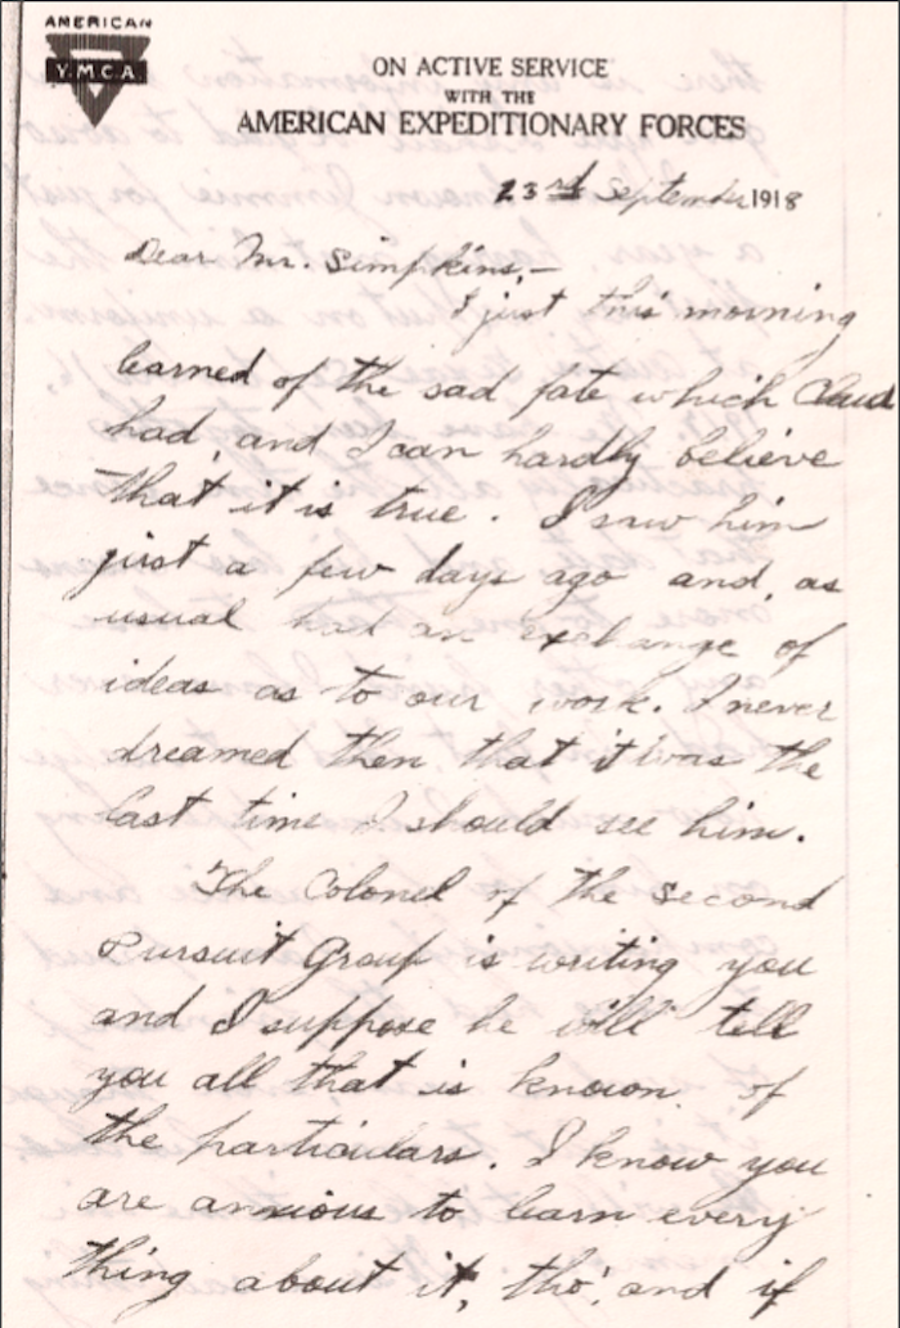 AMERICAN
Y.M.C.A.
ON ACTIVE SERVICE
WITH THE
AMERICAN EXPEDITIONARY FORCES
23rd September 1918
Dear Mr. Simpkins,—
I just this morning
learned of the sad fate which Claud
had, and I can hardly believe
that it is true. I saw him
just a few days ago and, as
usual had an exchange of
ideas as to our work. I never
dreamed then that it was the
last time I should see him.
The Colonel of the Second
Pursuit Group is writing you
and I suppose he will tell
you all that is known of
the particulars. I know you
are anxious to learn every
thing about it, tho', and if